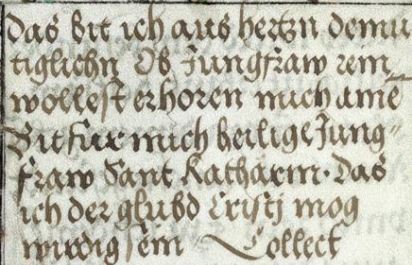 das bit ich aus hertzn demu
tiglichn Ob Jungfraw rein
wollest erhoren mich amē
Bit fur mich heilige Jung"
fraw Sant Katharin. Das
ich der glubd Cristj mog
wirdig sein Collect